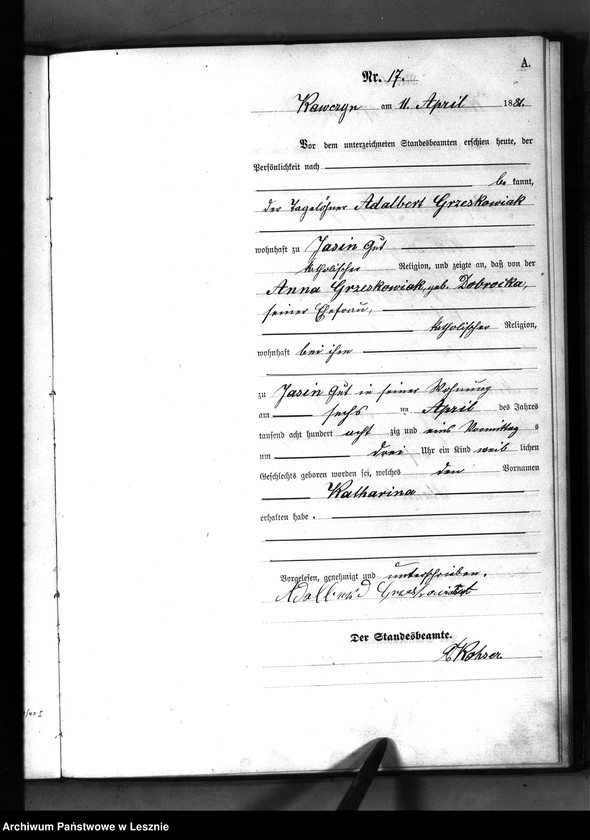 A.
Nr. 17.
Kawczyn am 11. April 1881.
Vor dem unterzeichneten Standesbeamten erschien heute, der
Persönlichkeit nach
be kannt,
der Tagelöhner Adalbert Grzeskowiak
wohnhaft zu Jasin Gut
katholischer Religion, und zeigte an, daß von der
Anna Grzeskowiak, geb. Dobrocka,
seiner Ehefrau,
katholischer Religion,
wohnhaft bei ihm
zu Jasin Gut in seiner Wohnung
am sechs ten April des Jahres
tausend acht hundert acht zig und eins Vormittag s
um drei Uhr ein Kind weib lichen
Geschlechts geboren worden sei, welches den Vornamen
Katharina
erhalten habe.
Vorgelesen, genehmigt und unterschrieben.
Der Standesbeamte.
Archiwum Państwowe w Lesznie